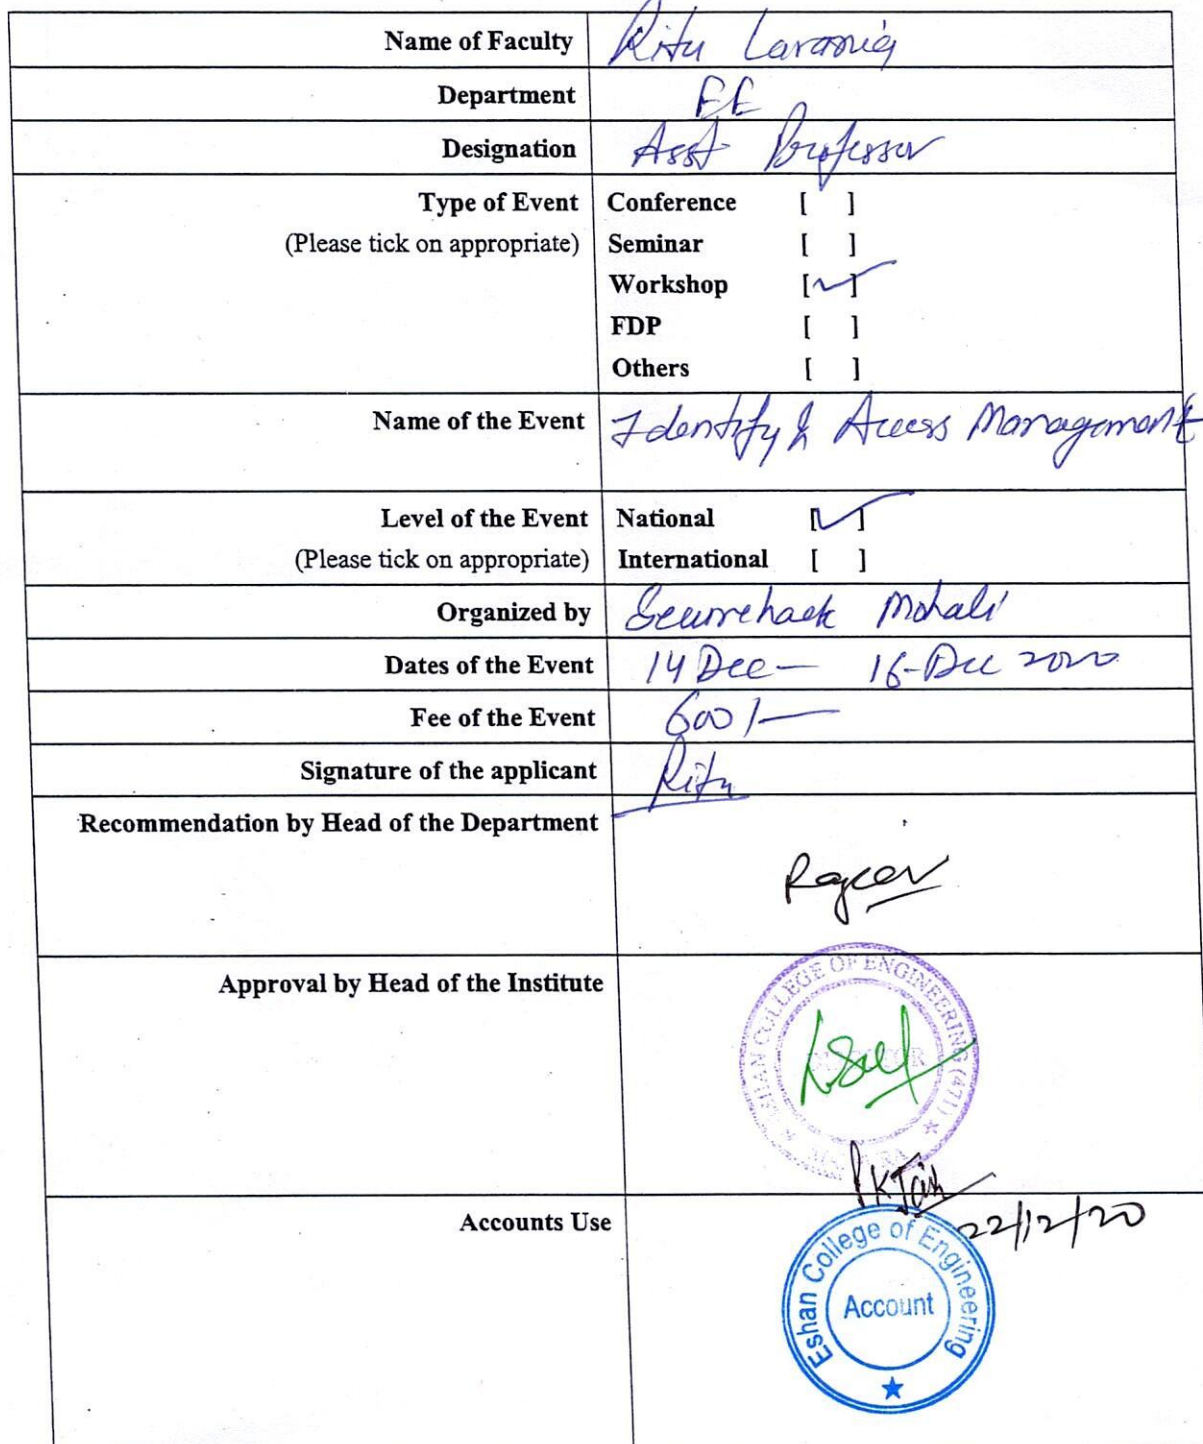 Name of Faculty Ritu Lavania
Department EE
Designation Asst Professor
Type of Event
(Please tick on appropriate)
Conference [ ]
Seminar [ ]
Workshop [✓]
FDP [ ]
Others [ ]
Name of the Event Identify & Access Management
Level of the Event
(Please tick on appropriate)
National [✓]
International [ ]
Organized by Mohali
Dates of the Event 14 Dec — 16-Dec 2020
Fee of the Event 600/—
Signature of the applicant Ritu
Recommendation by Head of the Department
Rajeev
Approval by Head of the Institute
ESHAN COLLEGE OF ENGINEERING (471) ★
PK Jain
22/12/20
Accounts Use
Eshan College of Engineering
Account
★